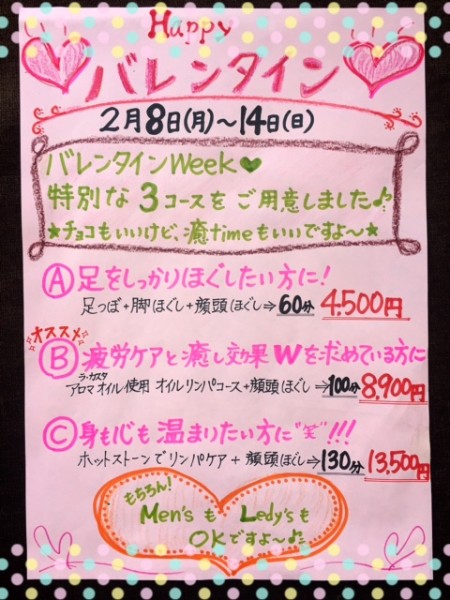 Happy
バレンタイン
2月8日(月)～14日(日)
バレンタインWeek♥
特別な3コースをご用意しました♪
★チョコもいいけど、癒timeもいいですよ～★
Ⓐ足をしっかりほぐしたい方に!
足つぼ+脚ほぐし+顔頭ほぐし⇒60分 4,500円
オススメ
Ⓑ疲労ケアと癒し効果Wを求めている方に
ラ・カスタ
アロマオイル使用 オイルリンパコース+顔頭ほぐし⇒100分 8,900円
Ⓒ身も心も温まりたい方に"笑"!!!
ホットストーンでリンパケア+顔頭ほぐし⇒130分 13,500円
もちろん!
Men'sも Ledy'sも
OKですよ～♪